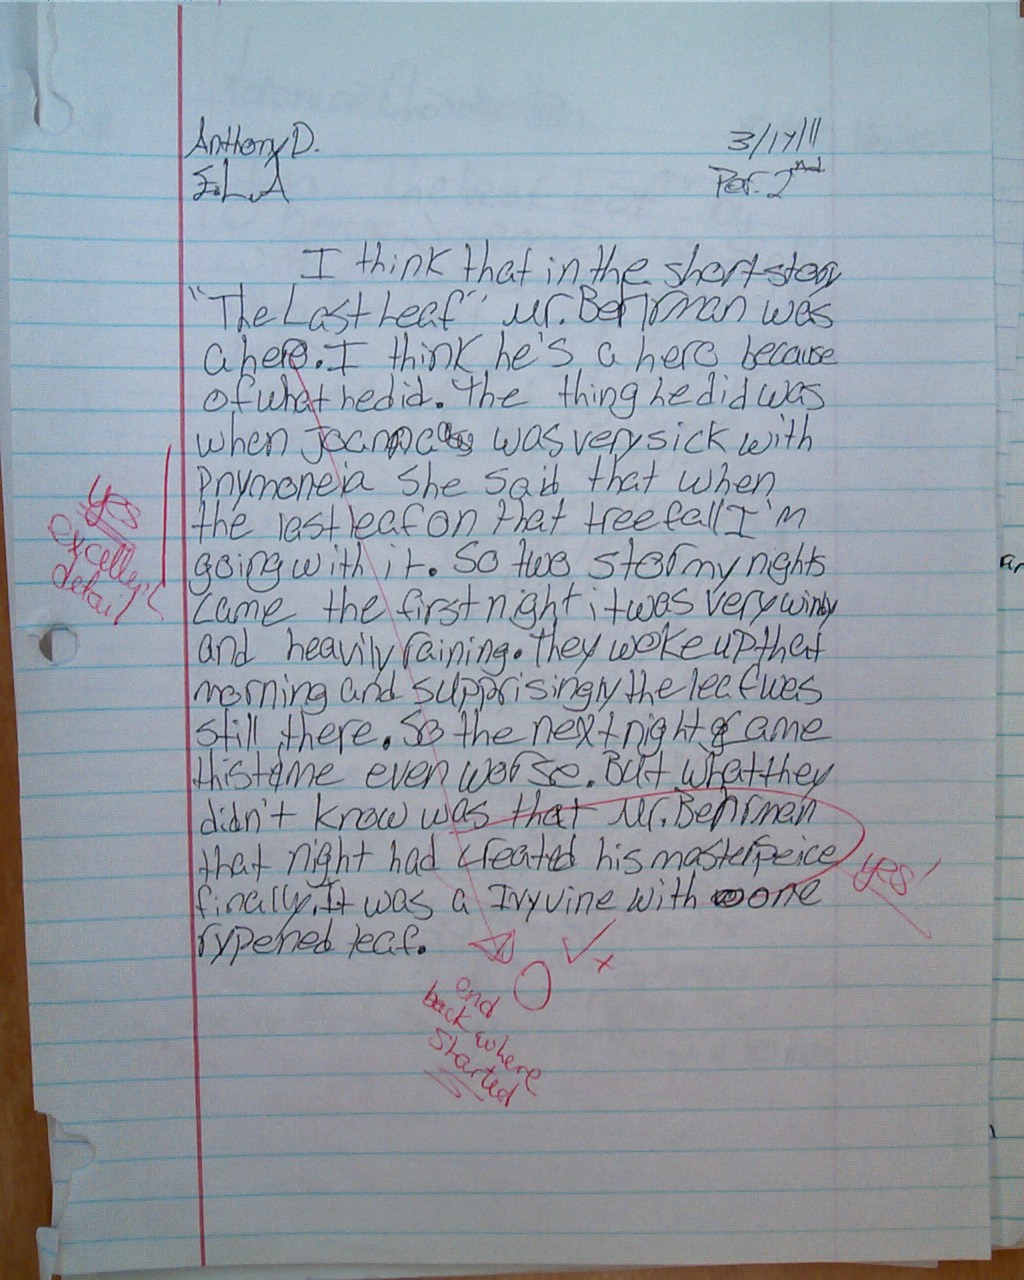 Anthony D. 3/17/11
E.L.A Per. 2nd
I think that in the short story
"The Last Leaf" Mr. Behrman was
a hero. I think he's a hero because
of what he did. The thing he did was
when Joanna was very sick with
Pnymoneia she said that when
the last leaf on that tree fall I'm
going with it. So two stormy nights
came the first night it was very windy
and heavily raining. They woke up that
morning and supprisingly the leaf was
still there. So the next night came
this time even worse. But what they
didn't know was that Mr. Behrman
that night had created his masterpeice
finally. It was a Ivy vine with one
rypened leaf.
yes
excellent
detail
yes!
end
back where
started